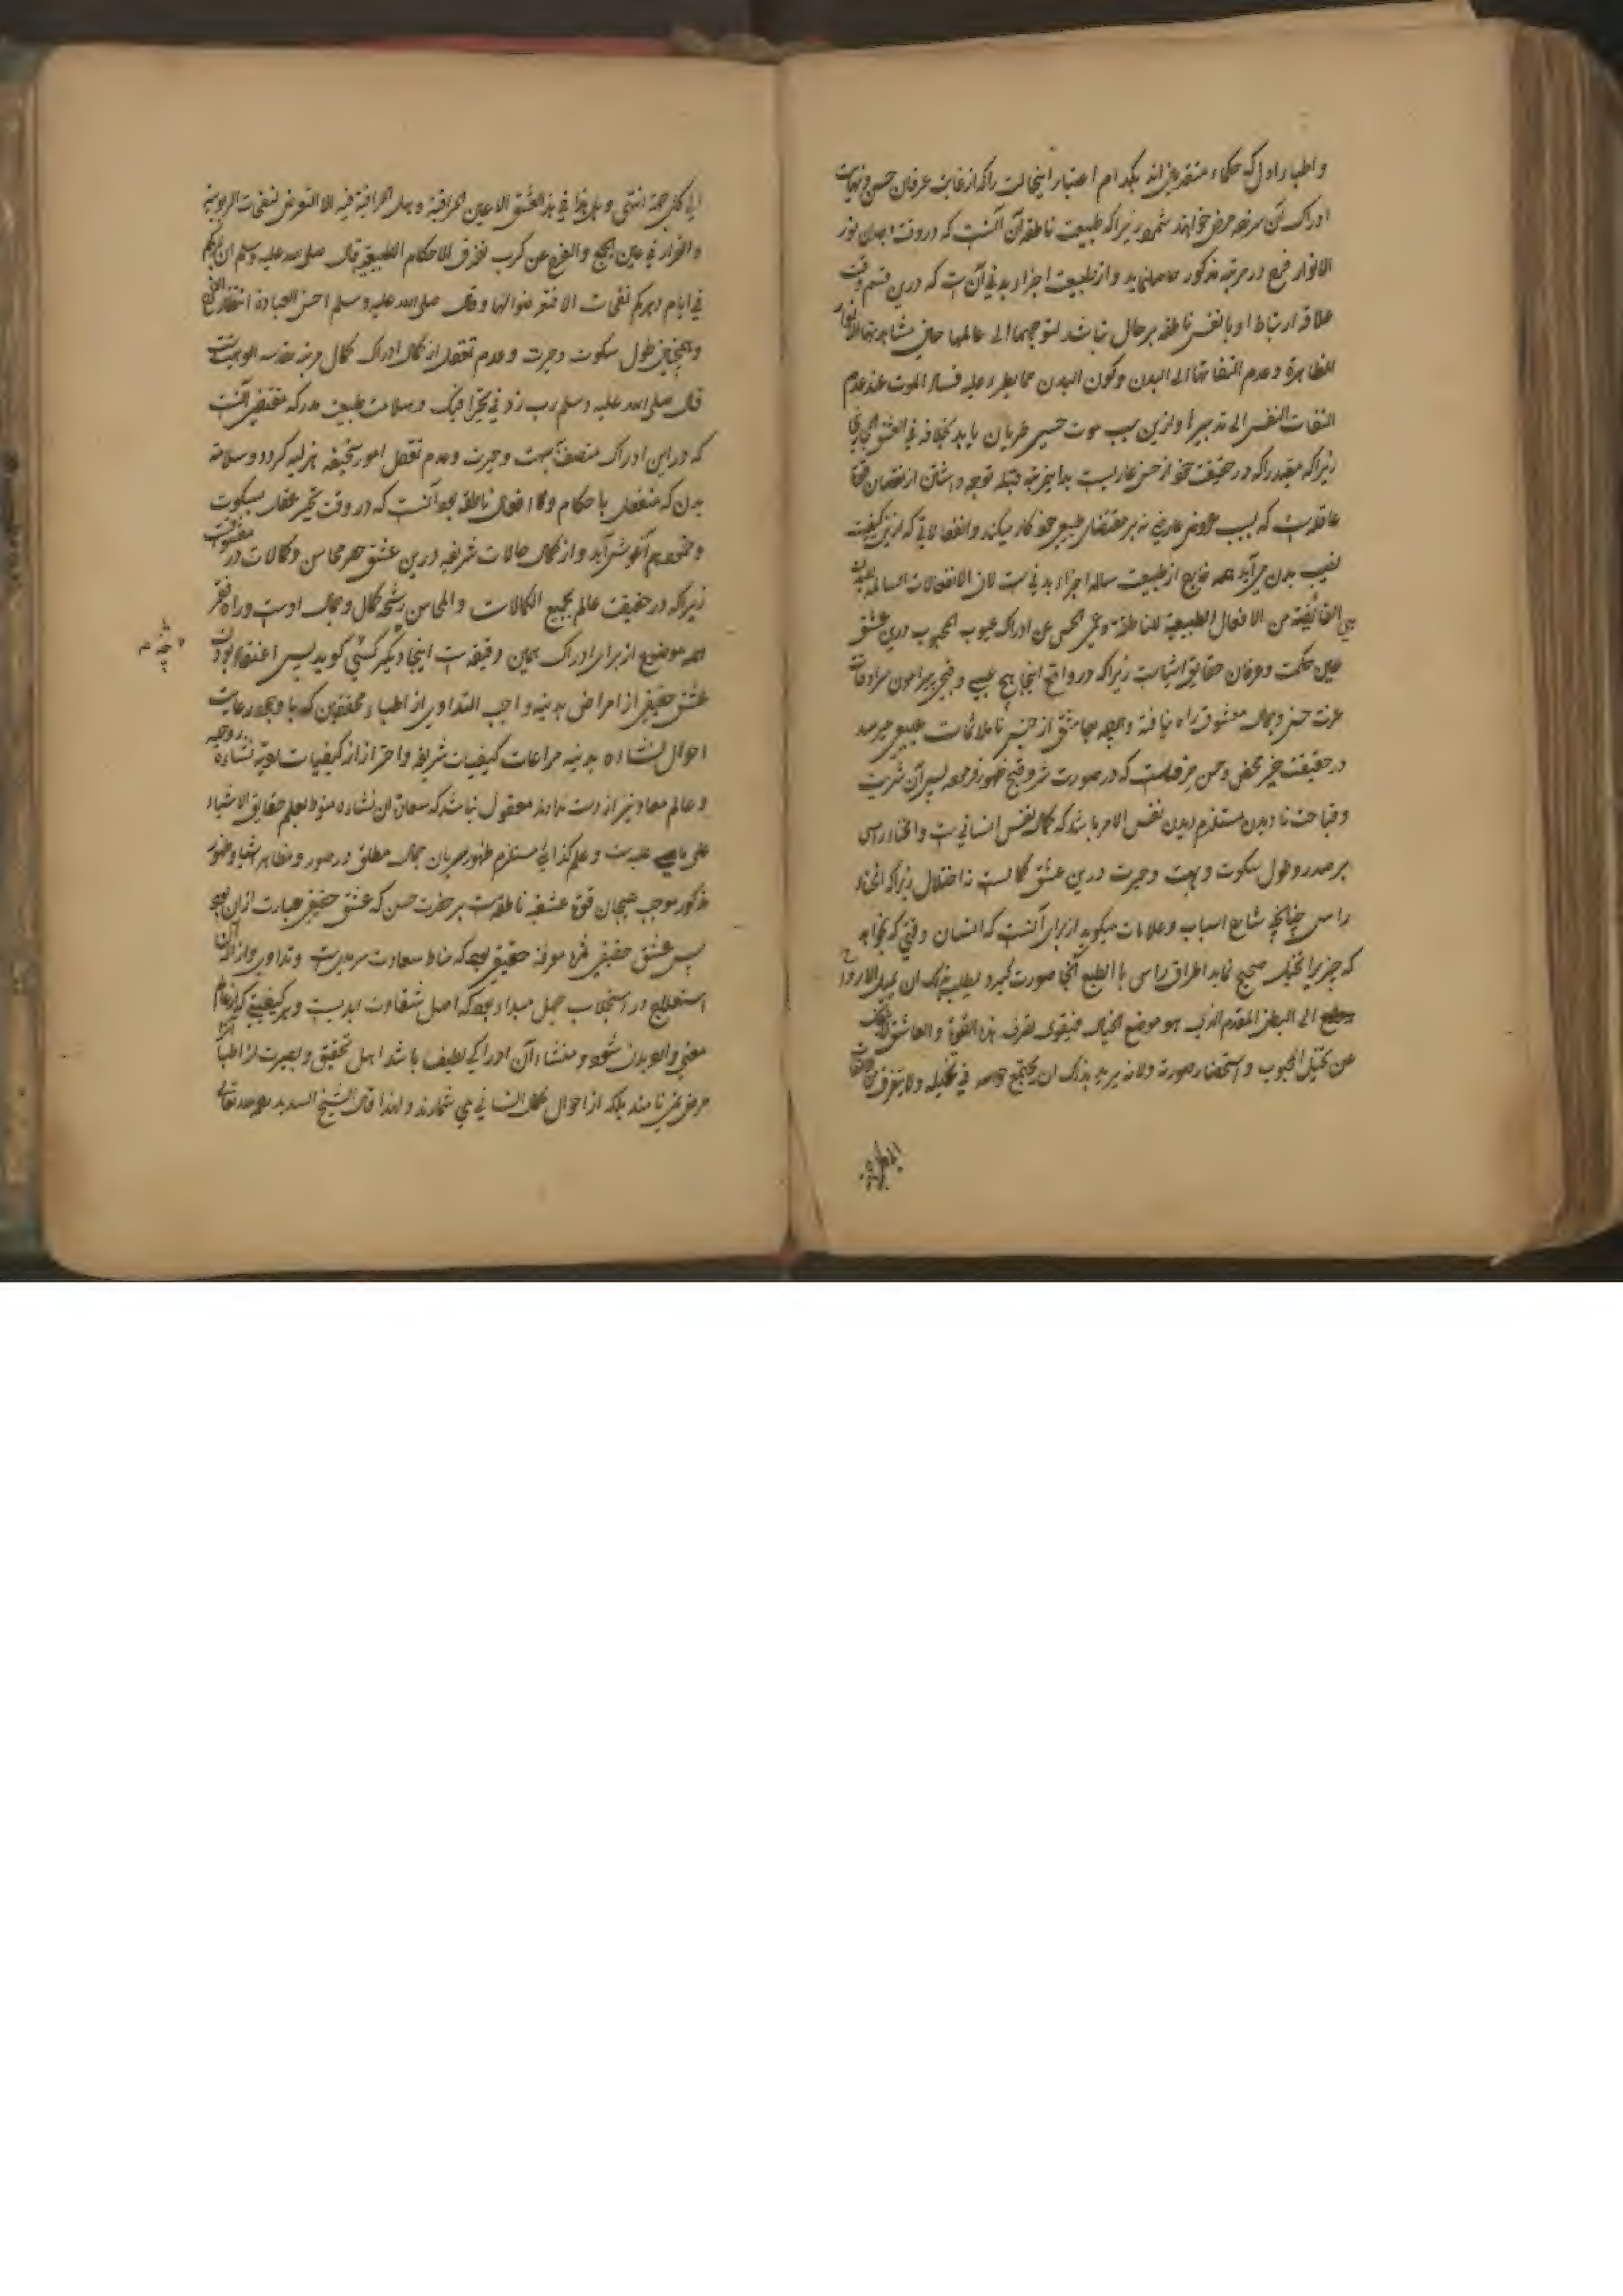 و اطبا را اول که حکماء متقدمین اند بکدام اعتبار اینحالت را که از غایت عرفان حسن و نهایت
ادراک آن سرزده مرض خوانند شمرد زیراکه طبیعت ناطقه آن آنست که در وقت
الانوار در مرتبه مذکور حاصل آید و از طبیعت اجزاء بدنی آن است که درین قسم وقت
علاقه ارتباط او با نفس ناطقه بر حال نباشد لتوجهها الی عالمها حین مشاهدتها الانوار
الظاهرة و عدم التفاتها الی البدن و کون البدن مما یطرء علیه فساد الموت عند عدم
التفات النفس الی تدبیرها و ازین سبب موت حسی طریان یابد بخلافه فی العشق المجازی
زیراکه مقید را که در حقیقت خود از حسن عاریست بدین مرتبه قبله توجه داشتن از نقصان
عاقلیت که بسبب عروض عارضه نه بر مقتضای طبیعی خود کار میکند و انفعالاتی که ازین کیفیت
نصیب بدن می‌آید همه خارج از طبیعت سالمه اجزاء بدنی است لان الانفعالات السالمة للبدن
هی الفائضة من الافعال الطبیعیة للناطقة و عمی الحس عن ادراک عیوب المحبوب درین عشق
عین حکمت و عرفان حقایق اشیاست زیراکه در واقع اینجا هیچ عیبی و قبحی پیرامون سرادقات
عزت حسن و جمال معشوق راه نیافته و آنچه بعاشق از جنس ناملائمات طبیعی میرسد
در حقیقت خیر محض و حسن صرفست که در صورت شر و قبح ظهور فرموده پس آن شریت
و قباحت نادیدن مستلزم دیدن نفس الامر باشد که کمال نفس انسانی است و انحناء راس
بر صدر و طول سکوت و بهت و حیرت درین عشق کمالست نه اختلال زیراکه انحناء
راس چنانچه شارح اسباب و علامات میگوید از برای آنست که انسان وقتی که بخواهد
که چیزی را تخیل صحیح نماید اطراق راس بالطبع آنجا صورت گیرد لیطلب بذلک ان یمیل الارواح
الی البطن المقدم الذی هو موضع الخیال فیقوی تصرف هذه القوة و العاشق
عن تخیل المحبوب و استحضار صورته و لانه یرید بذلک ان یجتمع حواسه فی تخیله و لا یتفرق
الی کل جهة انتهی و هل هذا فی هذا العشق الا عین المراقبة و هل المراقبة فیه الا التعرض لنفحات الربوبیة
و القرار فی عین الجمع و الفرج عن کرب تفرق الاحکام الطبیعیة قال صلی الله علیه وسلم ان لربکم
فی ایام دهرکم نفحات الا فتعرضوا لها و قال صلی الله علیه وسلم احسن العبادة انتظار الفرج
و همچنین طول سکوت و حیرت و عدم تعقل از کمال ادراک کمال مرتبه مقدسه الوهیت است
قال صلی الله علیه وسلم رب زدنی تحیرا فیک و سلامت طبیعت مدرکه مقتضی آنست
که در این ادراک متصف بهت و حیرت و عدم تعقل امور سخیفه هزلیه گردد و سلامة
بدن که منفعل باحکام و افعال ناطقه بود آنست که در وقت تحیر عقل بسکوت
و خمود هم آغوش آید و از کمال حالات شریفه درین عشق حصر محاسن و کمالات در معشوقست
زیراکه در حقیقت عالم بجمیع الکمالات و المحاسن رشحه کمال و جمال اوست و راه فقر
همه موضوع از برای ادراک همین دقیقه است اینجا دیگر کسی گوید پس اعتقاد بودن
عشق حقیقی از امراض بدنیه واجب التداوی از اطباء محققین که با وجود رعایت
احوال نشاءه بدنیه مراعات کیفیات شریفه و احتراز از کیفیات ردیه نشاءه روحیه
و عالم معاد نیز از دست ندادند معقول نباشد که سعادت آن نشاءه منوط بعلم حقایق الاشیاء
علی ما هی علیه است و علم کذائی مستلزم ظهور سریان جمال مطلق در صور و مظاهر اشیا و ظهور
مذکور موجب هیجان قوة عشقیه ناطقه است بر حضرت حسن که عشق حقیقی عبارت از آن بود
پس عشق حقیقی ثمره معرفة حقیقی بود که مناط سعادت سرمدیست و تداوی و ازاله آن
استعلاج در استجلاب جهل مبداء بود که اصل شقاوت ابدیست و هر کیفیتی که
معنی و الم بدن شود و منشاء آن ادراکی لطیف باشد اهل تحقیق و بصیرت از اطبا آنرا
مرض نمی‌نامند بلکه از احوال کمال انسانی می‌شمارند و لهذا قال الشیخ السدید رحمه الله تعالی